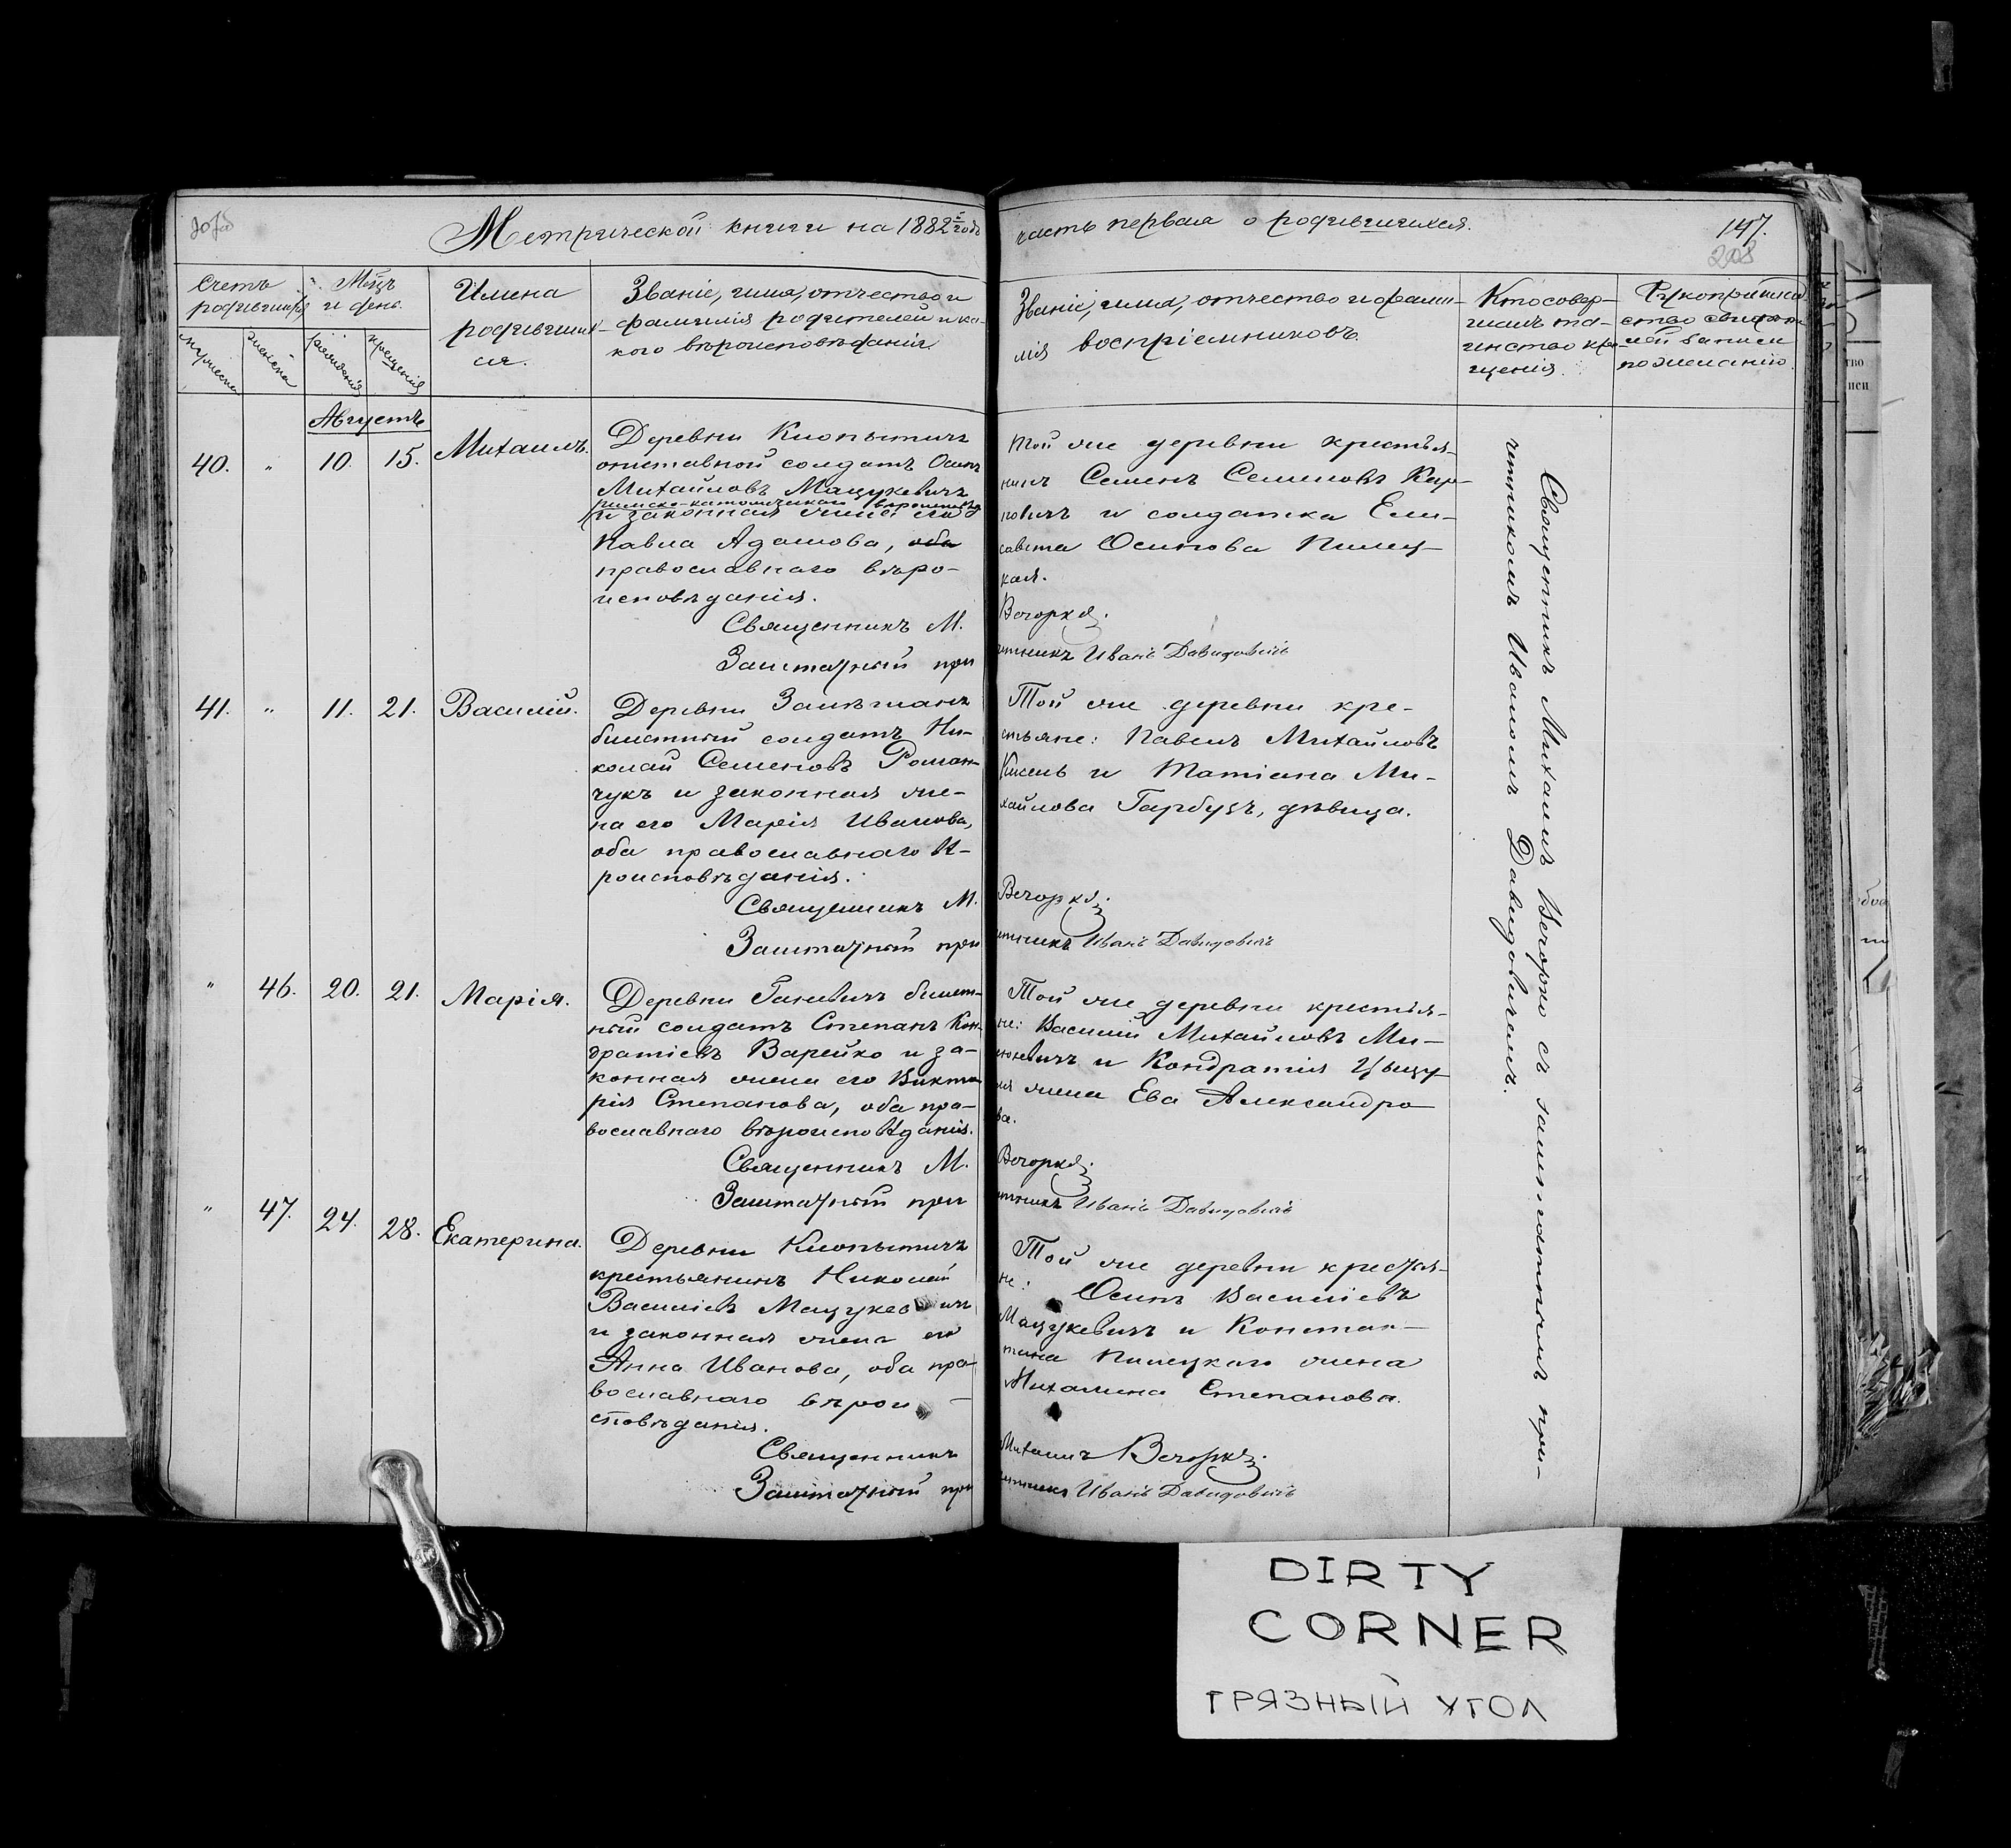 Метрической книги на 1882 годъ
часть первая о родившихся.
147.
208
Счетъ родившихся
Мѣсяцъ и день.
Имена
родивших-
ся.
Званіе, имя, отчество и
фамилія родителей и ка-
кого вѣроисповѣданія
Званіе, имя, отчество и фами-
лія воспріемниковъ.
Кто совер-
шалъ та-
инство кре-
щенія.
Рукоприклад
ство свидѣте
лей записи
по желанію.
мужеска
женска
рожденія
крещенія
Августъ
40. " 10. 15. Михаилъ.
Деревни Клопытичъ
отставной солдатъ Осипъ
Михайловъ Мацукевичъ
римско-католическаго вѣроисповѣд
и законная жена его
Павла Адамова, оба
православнаго вѣро-
исповѣданія.
Священникъ М.
Заштатный при
Той же деревни крестья-
нинъ Семенъ Семеновъ Кар-
повичъ и солдатка Ели-
савета Осипова Пилец-
кая.
Вечорко.
четникъ Иванъ Давидовичъ
41. " 11. 21. Василій.
Деревни
билетный солдатъ Ни-
колай Семеновъ Роман-
чукъ и законная же-
на его Марія Иванова,
оба православнаго вѣ-
роисповѣданія.
Священникъ М.
Заштатный при
Той же деревни кре-
стьяне: Павелъ Михайловъ
Кисель и Татіана Ми-
хайлова Гарбузъ, дѣвица.
Вечорко.
четникъ Иванъ Давидовичъ
" 46. 20. 21. Марія.
Деревни Ганевичъ билет-
ный солдатъ Степанъ Кон-
дратіевъ Варейко и за-
конная жена его Викто
рія Степанова, оба пра-
вославнаго вѣроисповѣданія.
Священникъ М.
Заштатный при
Той же деревни крестья-
не: Василій Михайловъ Ми-
нкевичъ и Кондратія Цыцу-
ля жена Ева Александро-
ва.
Вечорко.
четникъ Иванъ Давидовичъ
" 47. 24. 28. Екатерина.
Деревни Клопытичъ
крестьянинъ Николай
Василіевъ Мацукевичъ
и законная жена его
Анна Иванова, оба пра-
вославнаго вѣрои-
сповѣданія.
Священникъ
Заштатный при
Той же деревни крестья-
не: Осипъ Василіевъ
Мацукевичъ и Констан-
тина Пилецкаго жена
Михалина Степанова.
Михаилъ Вечорко.
четникъ Иванъ Давидовичъ
Священникъ Михаилъ Вечорко съ заштатнымъ при-
четникомъ Иваномъ Давидовичемъ.
DIRTY
CORNER
ГРЯЗНЫЙ УГОЛ